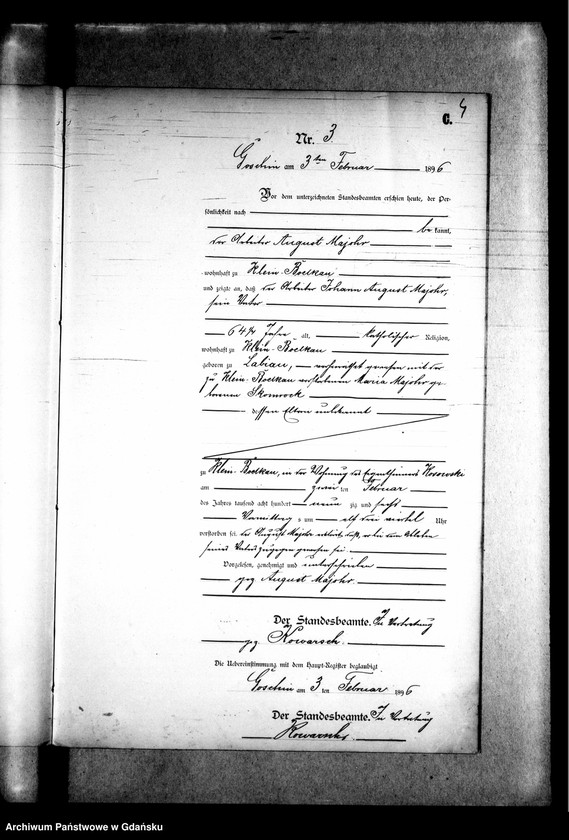 C. 4
Nr. 3
Goschin am 3ten Februar 1896
Vor dem unterzeichneten Standesbeamten erschien heute, der Per-
sönlichkeit nach
be kannt,
der Arbeiter August Majohr
wohnhaft zu Klein-Boelkau
und zeigte an, daß der Arbeiter Johann August Majohr,
sein Vater
64 1/4 Jahre alt, katholischer Religion,
wohnhaft zu Klein-Boelkau
geboren zu Labiau, verheirathet gewesen mit der
zu Klein-Boelkau verstorbenen Maria Majohr ge-
borenen Skomrock
dessen Eltern unbekannt
zu Klein-Boelkau, in der Wohnung des Eigenthümers Kosowski
am zwei ten Februar
des Jahres tausend acht hundert neun zig und sechs
Vormittag s um elf drei viertel Uhr
verstorben sei. der August Majohr erklärte daß, er bei dem Ableben
seines Vaters zugegen gewesen sei.
Vorgelesen, genehmigt und unterschrieben
gez August Majohr.
Der Standesbeamte. In Vertretung
gez Kowarsch.
Die Uebereinstimmung mit dem Haupt-Register beglaubigt
Goschin am 3 ten Februar 1896
Der Standesbeamte. In Vertretung
Archiwum Państwowe w Gdańsku